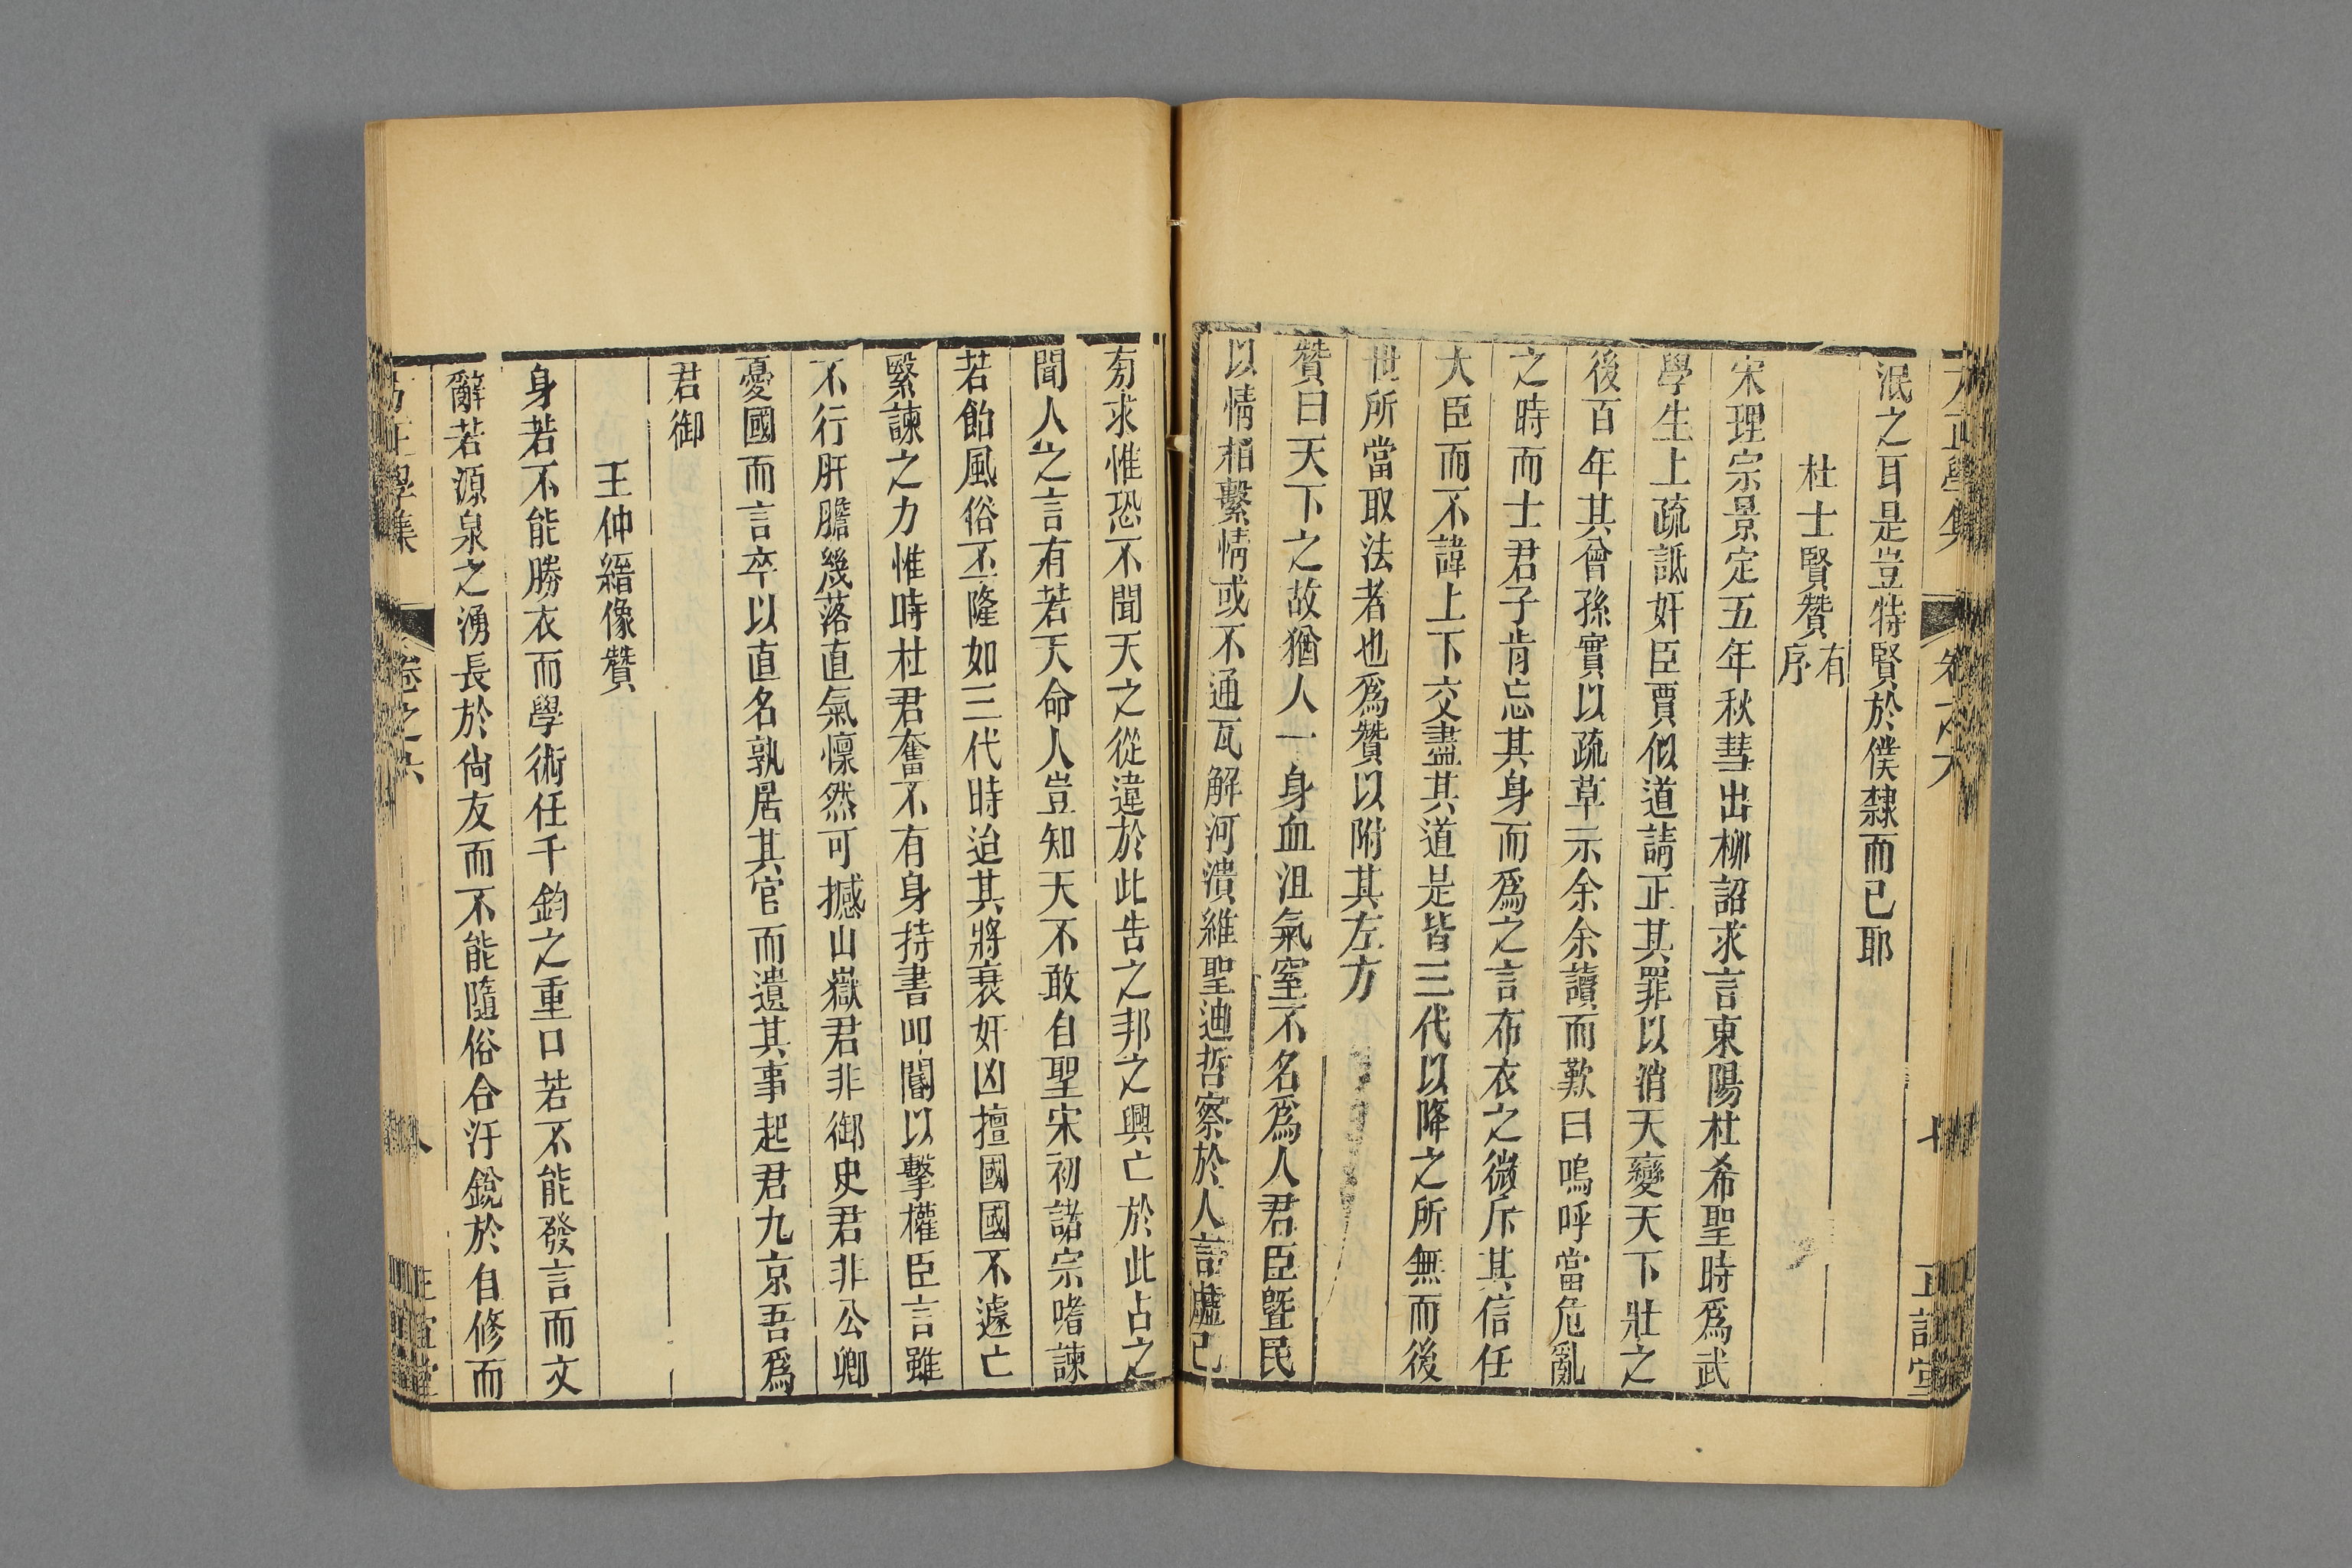 泯之耳是豈特賢於僕隸而已耶
杜士賢贊有序
宋理宗景定五年秋彗出柳詔求言東陽杜希聖時爲武
學生上疏詆奸臣賈似道請正其罪以消天變天下壯之
後百年其曾孫實以疏草示余余讀而歎曰嗚呼當危亂
之時而士君子肯忘其身而爲之言布衣之微斥其信任
大臣而不諱上下交盡其道是皆三代以降之所無而後
世所當取法者也爲贊以附其左方
贊曰天下之故猶人一身血沮氣窒不名爲人君臣暨民
以情相繫情或不通瓦解河潰維聖迪哲察於人言虛己
旁求惟恐不聞天之從違於此告之邦之興亡於此占之
聞人之言有若天命人豈知天不敢自聖宋初諸宗嗜諫
若飴風俗丕隆如三代時迨其將衰奸凶擅國國不遽亡
繄諫之力惟時杜君奮不有身持書叩閽以擊權臣言雖
不行肝膽幾落直氣懍然可撼山嶽君非御史君非公卿
憂國而言卒以直名孰居其官而遺其事起君九京吾爲
君御
王仲縉像贊
身若不能勝衣而學術任千鈞之重口若不能發言而文
辭若源泉之湧長於尙友而不能隨俗合汙銳於自修而
正學集 卷之六 八